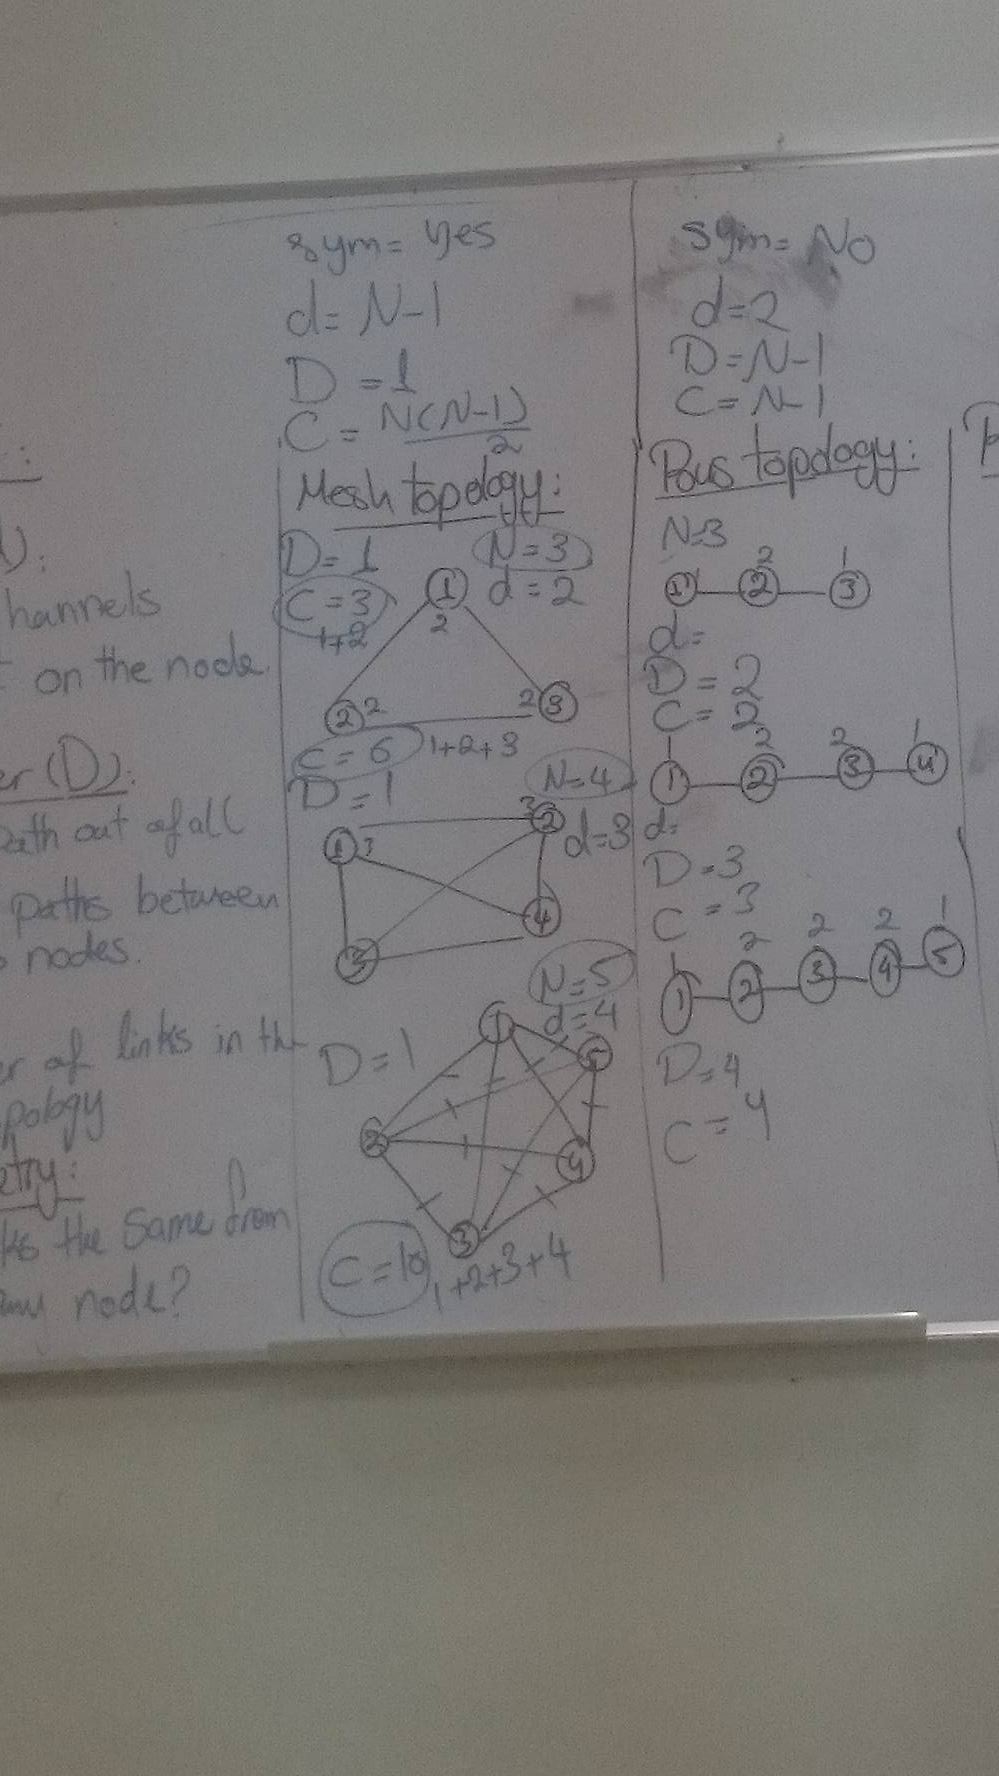 :
):
hannels
on the node.
er (D):
ath out of all
paths between
nodes.
er of links in th
pology
etry:
ks the same from
any node?
sym= yes
d= N-1
D = 1
C = N(N-1)
2
Mesh topology:
D=1 N=3
C=3 d=2
1+2
1
2
2 2 2 3
C=6 1+2+3
D=1 N=4
3 2
1 3 d=3
4
3
N=5
1 d=4
D=1 5
2
4
3
C=10 1+2+3+4
sym= No
d=2
D=N-1
C=N-1
Bus topology:
N=3
1 2 1
1 2 3
d=
D=2
C=2
1 2 2 1
1 2 3 4
d=
D=3
C=3
1 2 2 2 1
1 2 3 4 5
D=4
C=4